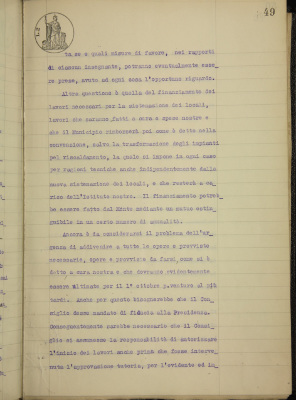 49
ta se e quali misure di favore, nei rapporti
di ciascun insegnante, potranno eventualmente esse=
re prese, avuto ad ogni cosa l'opportuno riguardo.
Altra questione è quella del finanziamento dei
lavori necessari per la sistemazione dei locali,
lavori che saranno fatti a cura e spese nostre e
che il Municipio rimborserà poi come è detto nella
convenzione, salvo la trasformazione degli impianti
pel riscaldamento, la quale si impone in ogni caso
per ragioni tecniche anche indipendentemente dalla
nuova sistemazione dei locali, e che resterà a ca=
rico dell'Istituto nostro. Il finanziamento potreb
be essere fatto dal Monte mediante un mutuo estin=
guibile in un certo numero di annualità.
Ancora è da considerarsi il problema dell'ur=
genza di addivenire a tutte le opere e provviste
necessarie, opere e provviste da farsi, come si è
detto a cura nostra e che dovranno evidentemente
essere ultimate per il 1° ottobre p.venturo al più
tardi. Anche per questo bisognerebbe che il Con=
siglio desse mandato di fiducia alla Presidenza.
Conseguentemente sarebbe necessario che il Consi=
glio si assumesse la responsabilità di autorizzare
l'inizio dei lavori anche prima che fosse interve=
nuta l'approvazione tutoria, per l'evidente ed in=